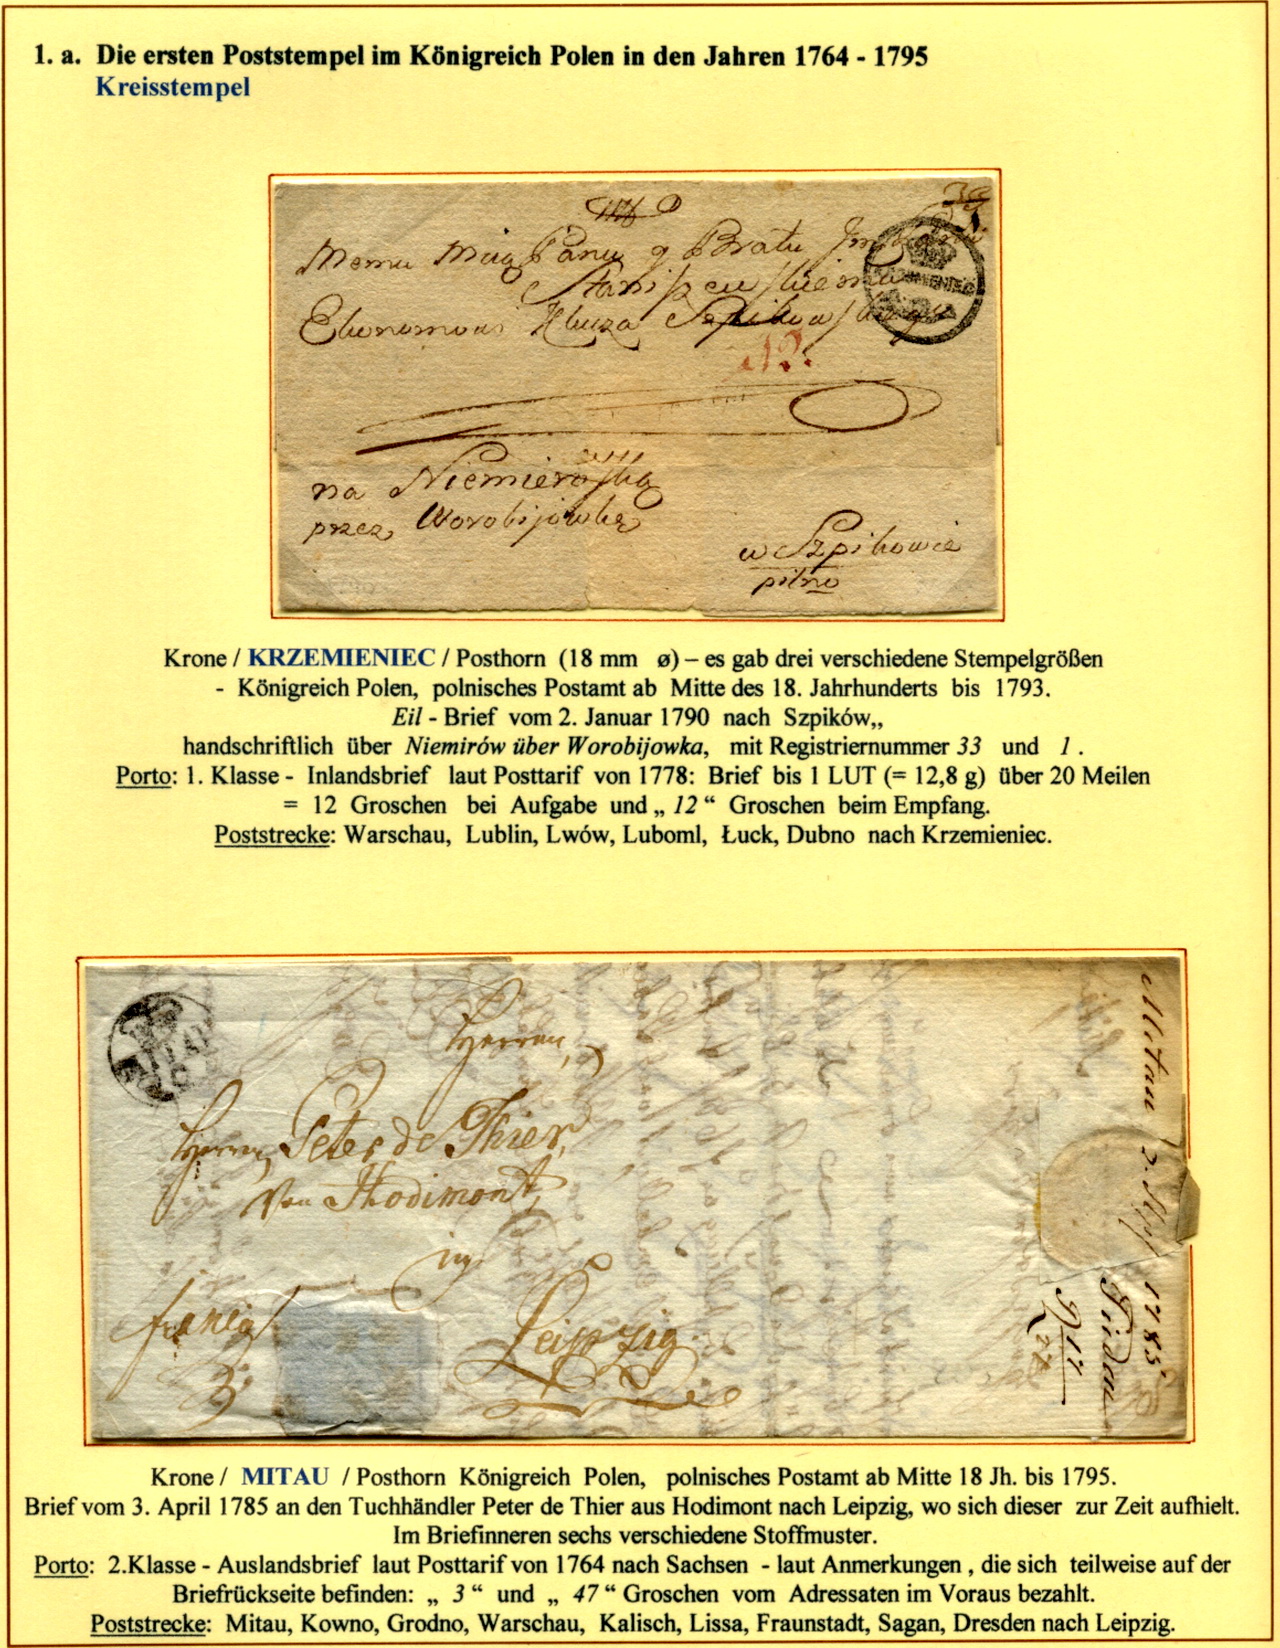 1. a. Die ersten Poststempel im Königreich Polen in den Jahren 1764 - 1795
Kreisstempel
Memu Panu y Bratu
KRZEMIENIEC
12.
na
przez Worobijowkę
w Szpikowie
pilno
Krone / KRZEMIENIEC / Posthorn (18 mm ø) – es gab drei verschiedene Stempelgrößen
- Königreich Polen, polnisches Postamt ab Mitte des 18. Jahrhunderts bis 1793.
Eil - Brief vom 2. Januar 1790 nach Szpików,,
handschriftlich über Niemirów über Worobijowka, mit Registriernummer 33 und 1 .
Porto: 1. Klasse - Inlandsbrief laut Posttarif von 1778: Brief bis 1 LUT (= 12,8 g) über 20 Meilen
= 12 Groschen bei Aufgabe und „ 12 “ Groschen beim Empfang.
Poststrecke: Warschau, Lublin, Lwów, Luboml, Łuck, Dubno nach Krzemieniec.
MITAU
Herren,
Herrn, Peter de Thier,
von Hodimont,
in
Leipzig
3
Mitau 1785
Krone / MITAU / Posthorn Königreich Polen, polnisches Postamt ab Mitte 18 Jh. bis 1795.
Brief vom 3. April 1785 an den Tuchhändler Peter de Thier aus Hodimont nach Leipzig, wo sich dieser zur Zeit aufhielt.
Im Briefinneren sechs verschiedene Stoffmuster.
Porto: 2.Klasse - Auslandsbrief laut Posttarif von 1764 nach Sachsen - laut Anmerkungen , die sich teilweise auf der
Briefrückseite befinden: „ 3 “ und „ 47 “ Groschen vom Adressaten im Voraus bezahlt.
Poststrecke: Mitau, Kowno, Grodno, Warschau, Kalisch, Lissa, Fraunstadt, Sagan, Dresden nach Leipzig.